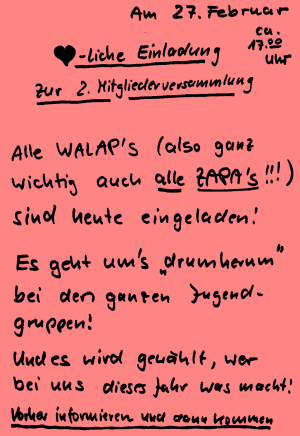 Am 27. Februar
ca.
17.00
Uhr
♥-liche Einladung
zur 2. Mitgliederversammlung
Alle WALAP's (also ganz
wichtig auch alle ZAPA's!!!)
sind heute eingeladen!
Es geht um's „drumherum"
bei den ganzen Jugend-
gruppen!
Und es wird gewählt, wer
bei uns dieses Jahr was macht!
Vorher informieren und dann kommen